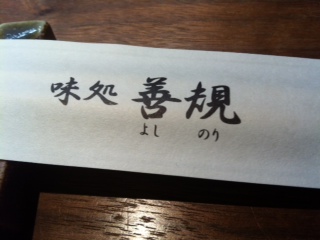 味処 善規
よし のり